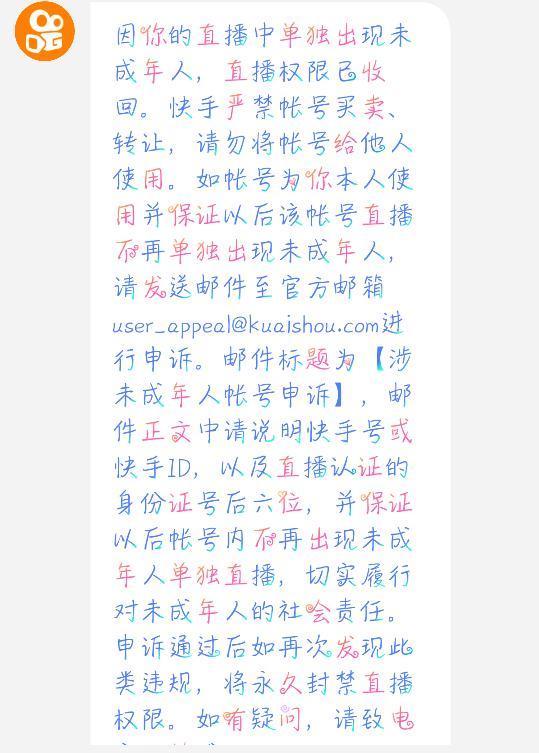 因你的直播中单独出现未
成年人，直播权限已收
回。快手严禁帐号买卖、
转让，请勿将帐号给他人
使用。如帐号为你本人使
用并保证以后该帐号直播
不再单独出现未成年人，
请发送邮件至官方邮箱
user_appeal@kuaishou.com进
行申诉。邮件标题为【涉
未成年人帐号申诉】，邮
件正文中请说明快手号或
快手ID，以及直播认证的
身份证号后六位，并保证
以后帐号内不再出现未成
年人单独直播，切实履行
对未成年人的社会责任。
申诉通过后如再次发现此
类违规，将永久封禁直播
权限。如有疑问，请致电